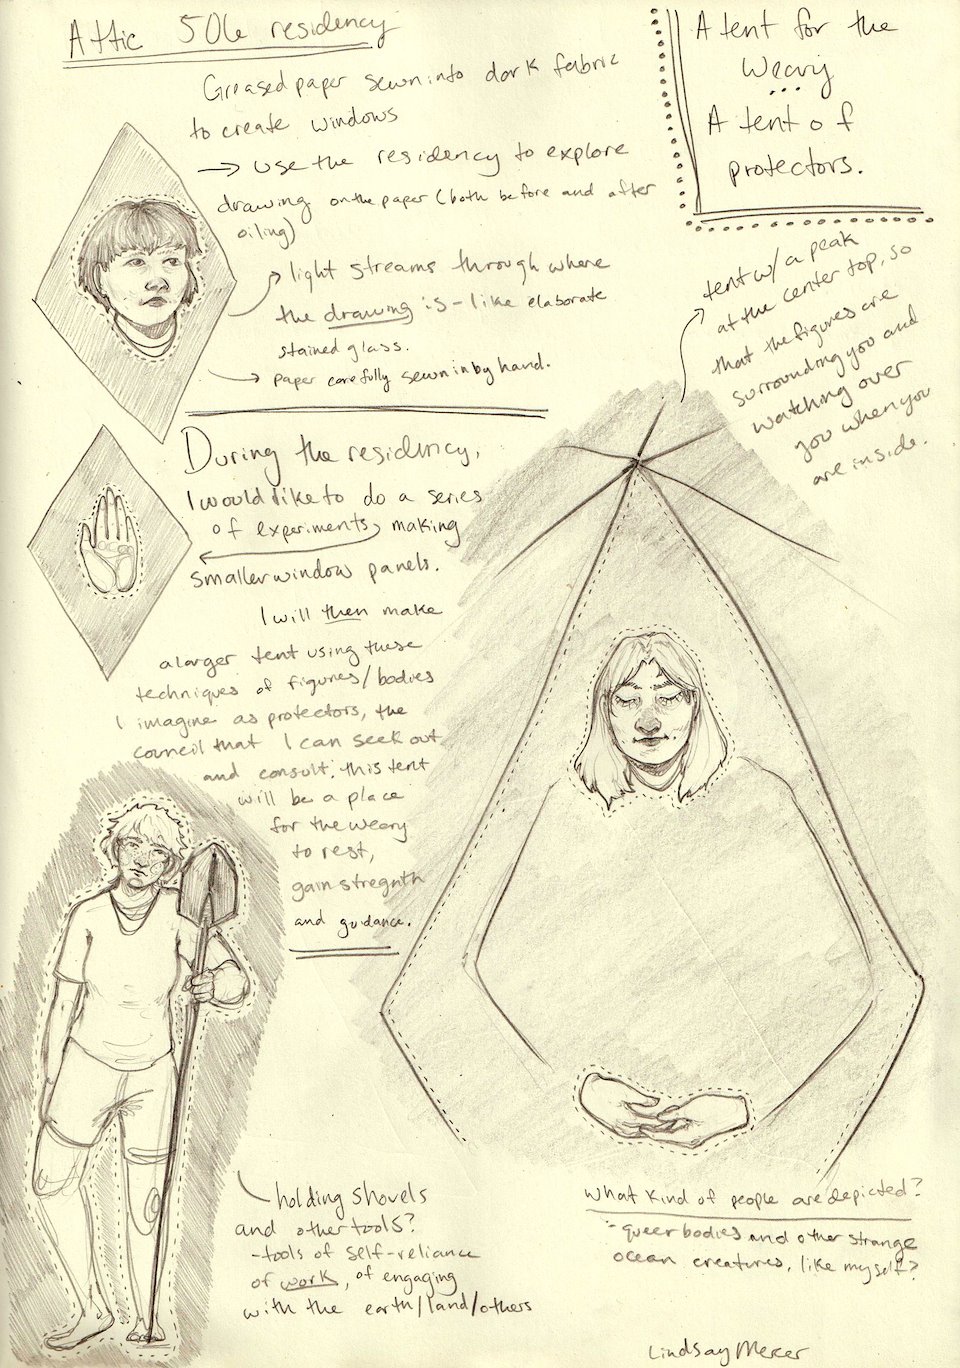 Attic 506 residency
Greased paper sewn into dark fabric
to create windows
→ use the residency to explore
drawing on the paper (both before and after
oiling)
light streams through where
the drawing is - like elaborate
stained glass.
→ paper carefully sewn in by hand.
A tent for the
Weary
...
A tent of
protectors.
tent w/ a peak
at the center top, so
that the figures are
surrounding you and
watching over
you when you
are inside.
During the residency,
I would like to do a series
of experiments, making
smaller window panels.
I will then make
a larger tent using these
techniques of figures/bodies
I imagine as protectors, the
council that I can seek out
and consult; this tent
will be a place
for the weary
to rest,
gain stregnth
and guidance.
holding shovels
and other tools?
- tools of self-reliance
of work, of engaging
with the earth/land/others
What kind of people are depicted?
- queer bodies and other strange
ocean creatures, like myself?
Lindsay Mercer